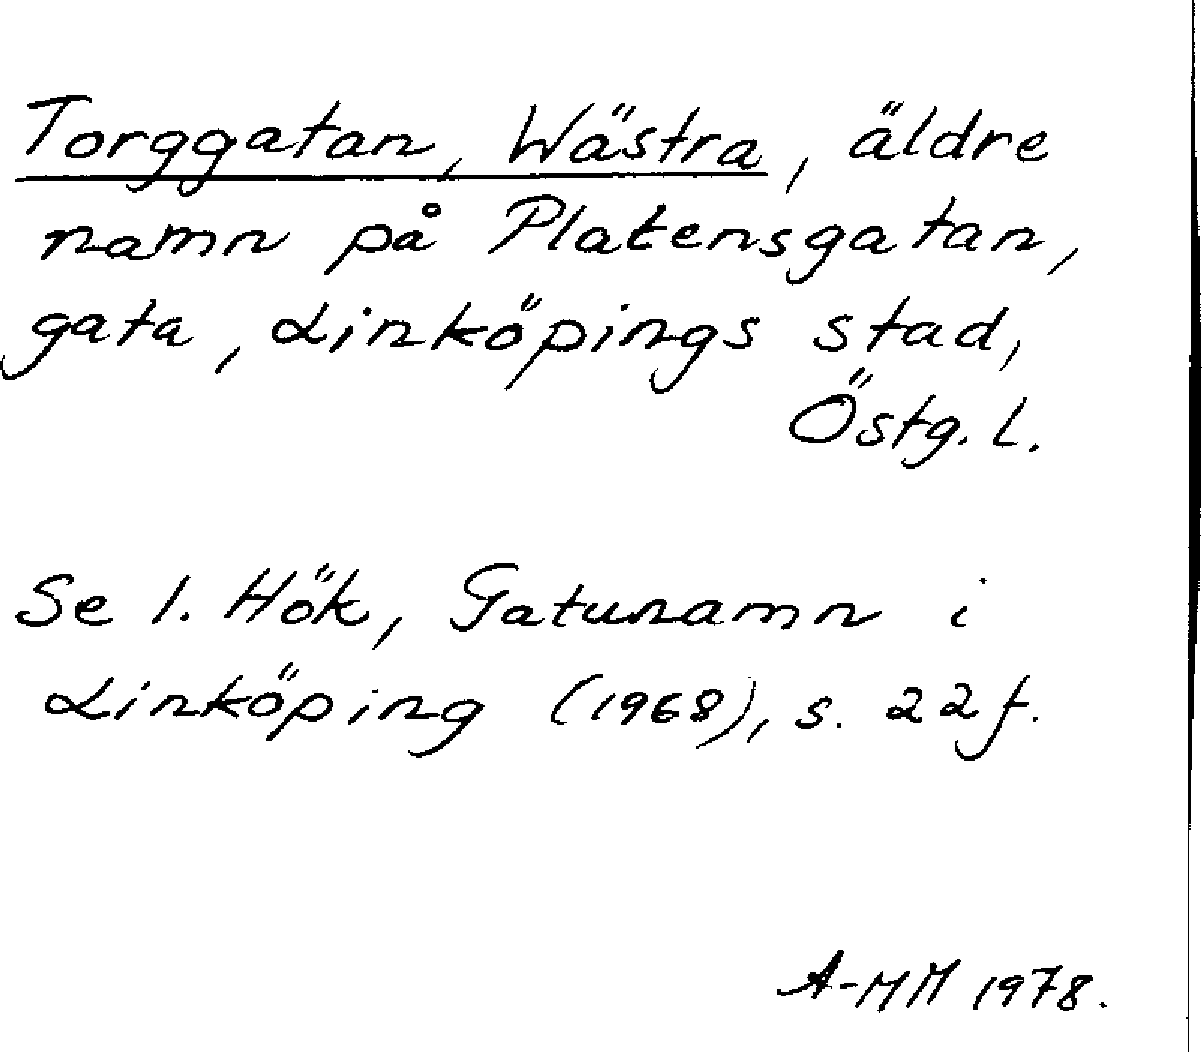 Torggatan, Wästra, äldre
namn på Platensgatan,
gata, Linköpings stad,
Östg. l.
Se I. Hök, Gatunamn i
Linköping (1968), s. 22 f.
A-MM 1978.